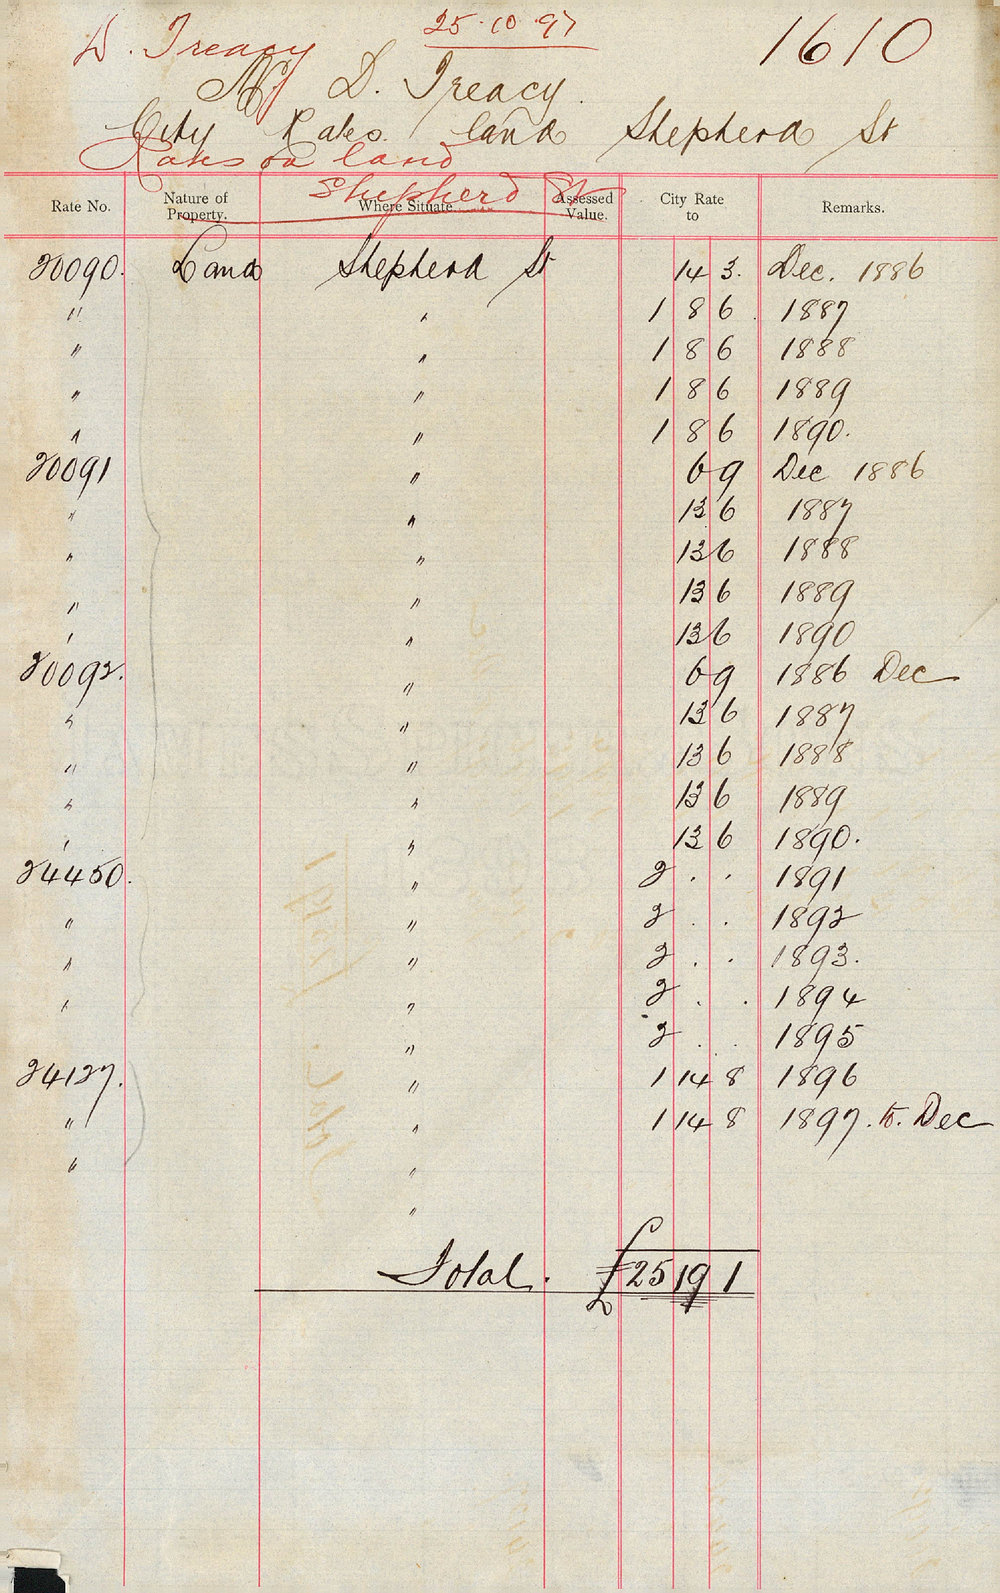 25.10.97
D. Treacy 1610
Mr D. Treacy.
City Rates. land Shepherd St
Rates on land
Shepherd St
Rate No. Nature of Property. Where Situate Assessed Value. City Rate to Remarks.
20090. Land Shepherd St 14 3. Dec. 1886
" " 1 8 6 1887
" " 1 8 6 1888
" " 1 8 6 1889
" " 1 8 6 1890.
20091 " 6 9 Dec 1886
" " 13 6 1887
" " 13 6 1888
" " 13 6 1889
" " 13 6 1890
20092. " 6 9 1886 Dec
" " 13 6 1887
" " 13 6 1888
" " 13 6 1889
" " 13 6 1890.
24450. " 2 . . 1891
" " 2 . . 1892
" " 2 . . 1893.
" " 2 . . 1894
" 2 . . 1895
24127. " 1 14 8 1896
" " 1 14 8 1897. to. Dec
" "
"
Total. £25 19 1